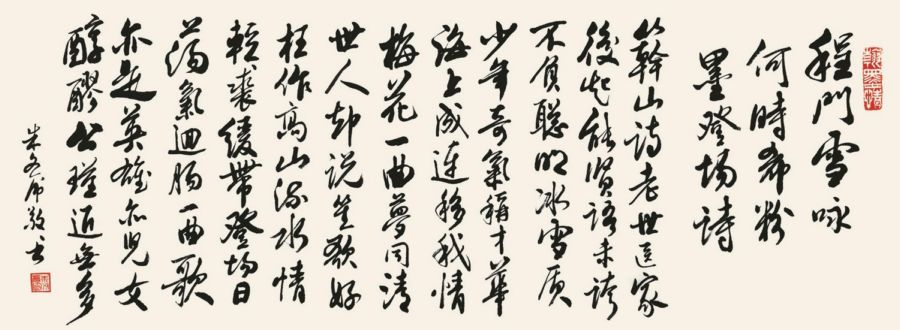 程門雪咏
何時希粉
墨登场詩
簳山詩老世医家
後起能賢語未誇
不負聪明冰雪质
少年奇氣稱才華
海上成連移我情
梅花一曲夢同清
世人却说笙歌好
枉作高山流水情
輕裘緩带登场日
荡氣迴肠一曲歌
亦是英雄亦児女
醇醪公瑾近無多
朱敬书
翰墨情